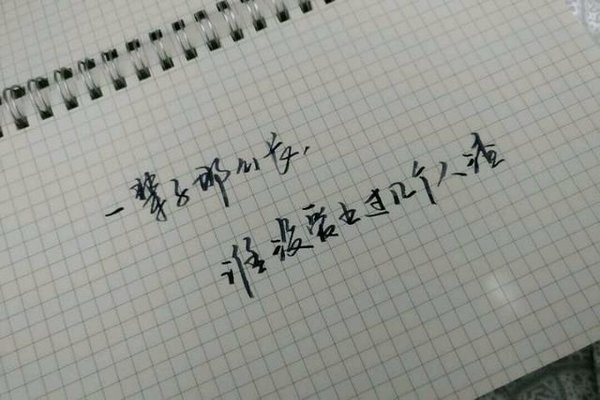 一辈子那么长，
谁没爱上过几个人渣